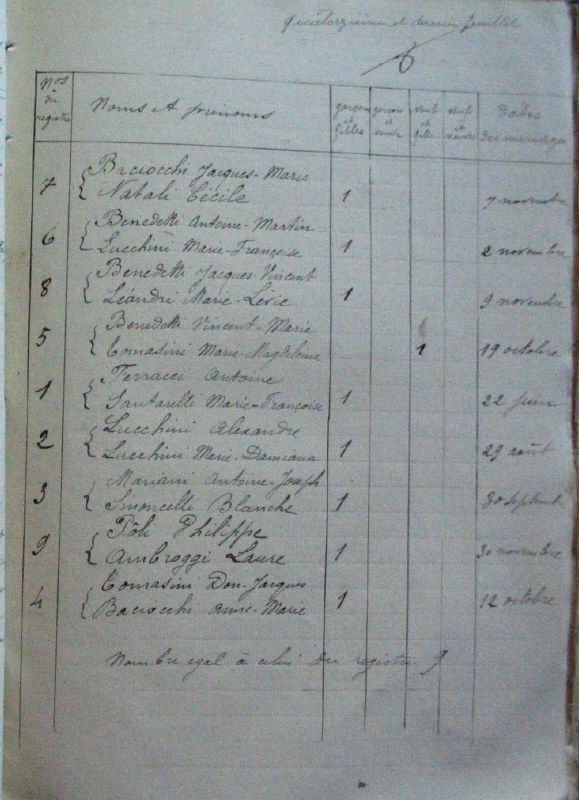 Quatorzième et dernier feuillet
Nos du registre
Noms et prénoms
garçons et filles
garçons et veuves
veufs et filles
veufs et veuves
Dates des mariages
7 Baciocchi Jacques-Marie
Natali Cécile 1 7 novembre
6 Benedetti Antoine-Martin
Lucchini Marie-Françoise 1 2 novembre
8 Benedetti Jacques-Vincent
Léandri Marie-Lévie 1 9 novembre
5 Benedetti Vincent-Marie
Comasini Marie-Magdeleine 1 19 octobre
1 Ferracci Antoine
Santarelli Marie-Françoise 1 22 juin
2 Lucchini Alexandre
Lucchini Marie-Damiana 1 29 août
3 Mariani Antoine-Joseph
Simoncelli Blanche 1 30 septembre
9 Pôli Philippe
Ambroggi Laure 1 30 novembre
4 Comasini Don-Jacques
Baciocchi Anne-Marie 1 12 octobre
Nombre egal à celui du registre 9